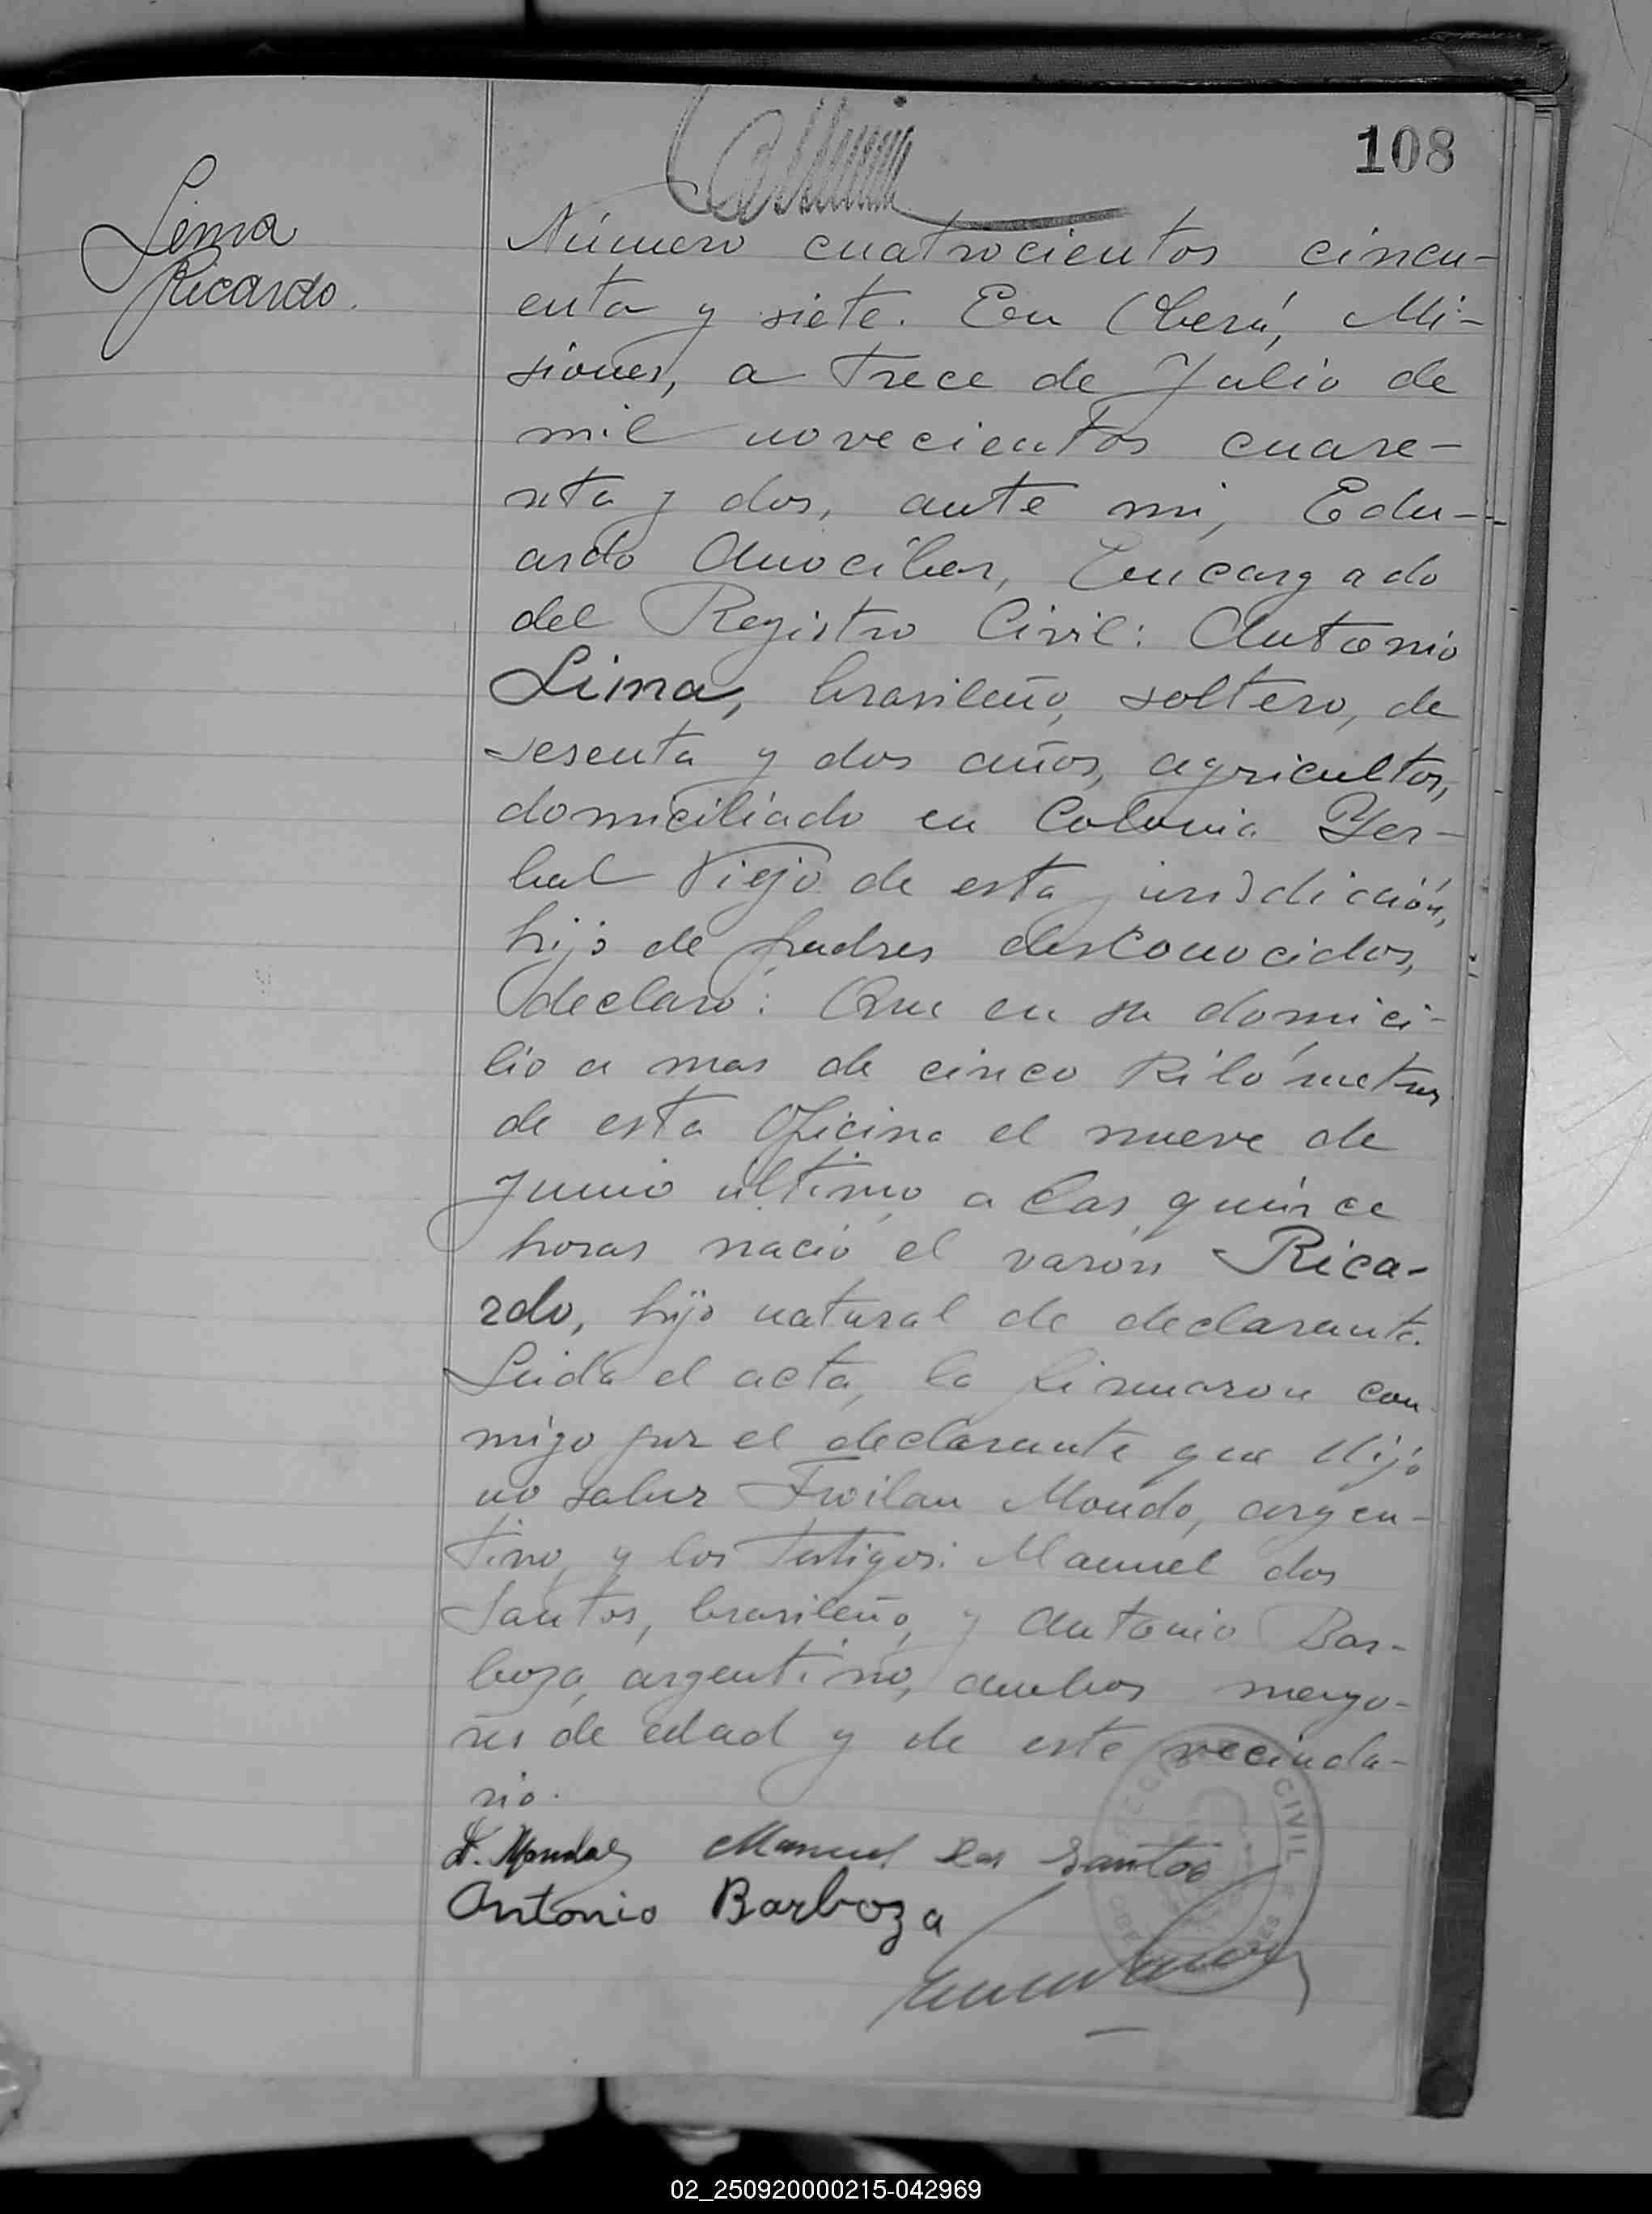 108
Lima
Ricardo.
Número cuatrocientos cincu-
enta y siete. En Oberá, Mi-
siones, a trece de Julio de
mil novecientos cuare-
nta y dos, ante mi, Edu-
ardo Anocíbar, Encargado
del Registro Civil: Antonio
Lima, brasileño, soltero, de
sesenta y dos años, agricultor,
domiciliado en Colonia Yer-
bal Viejo de esta jurisdicción,
hijo de padres desconocidos,
declaró: Que en su domici-
lio a mas de cinco Kilómetros
de esta Oficina el nueve de
Junio último a las quince
horas nació el varón Rica-
rdo, hijo natural de declarante.
Leida el acta, la firmaron con
migo por el declarante que dijo
no saber Froilan Mondo, argen-
tino, y los testigos: Manuel dos
Santos, brasileño, y Antonio Bar-
boza, argentino, ambos mayo-
res de edad y de este vecinda-
rio.
Manuel dos Santos
Antonio Barboza
CIVIL
02_250920000215-042969